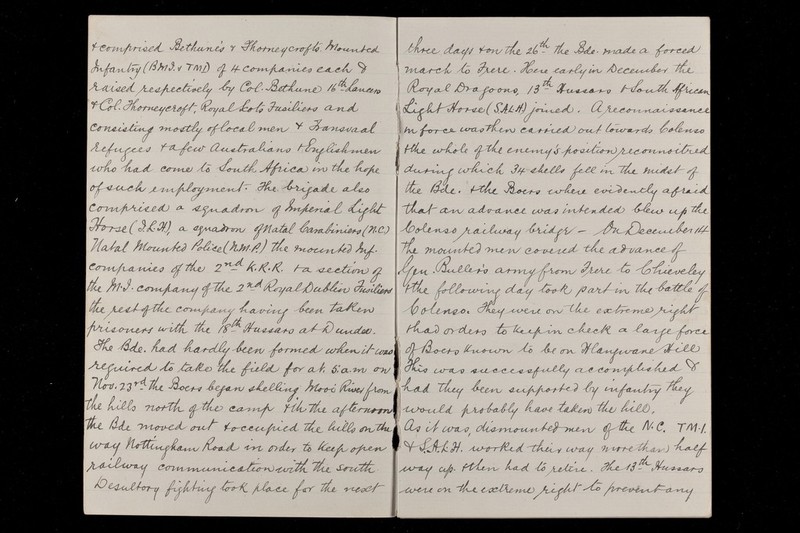 & comprised Bethune's & Thorneycroft's Mounted
Infantry (B.M.I. & T.M.I) of 4 companies each &
raised respectively by Col. Bethune 16th Lancers
& Col. Thorneycroft, Royal Scots Fusiliers and
consisting mostly of local men & Transvaal
Refugees & a few Australians & Englishmen
who had come to South Africa in the hope
of such employment. The brigade also
comprised a squadron of Imperial Light
Horse (I.L.H), a squadron of Natal Carabiniers (N.C.)
Natal Mounted Police (N.M.P.) the mounted Inf.
companies of the 2nd K.R.R. & a section of
the M.I. company of the 2nd Royal Dublin Fusiliers
the rest of the company having been taken
prisoners with the 18th Hussars at Dundee.
The Bde. had hardly been formed when it was
required to take the field for at 5 am on
Nov. 23rd The Boers began shelling Mooi River from
the hills north of the camp & in the afternoon
the Bde moved out & occupied the hills on the
way Nottingham Road in order to keep open
railway communication with the South
Desultory fighting took place for the next
three days & on the 26th the Bde. made a forced
march to Frere. Here early in December the
Royal Dragoons, 13th Hussars & South African
Light Horse (S.A.L.H) joined. A reconnaissance
in force was then carried out towards Colenso
& the whole of the enemy's position reconnoitred
during which 34 shells fell in the midst of
the Bde. & the Boers where evidently afraid
that an advance was intended blew up the
Colenso railway bridge — On December 14
the mounted men covered the advance of
Gen. Buller's army from Frere to Chieveley
& the following day took part in the battle of
Colenso. They were on the extreme right
& had orders to keep in check a large force
of Boers known to be on Hlangwane Hill
This was successfully accomplished &
had they been supported by infantry they
would probably have taken the hill.
As it was, dismounted men of the N.C. T.M.I.
& S.A.L.H. worked their way more than half
way up & then had to retire. The 13th Hussars
were on the extreme right to prevent any